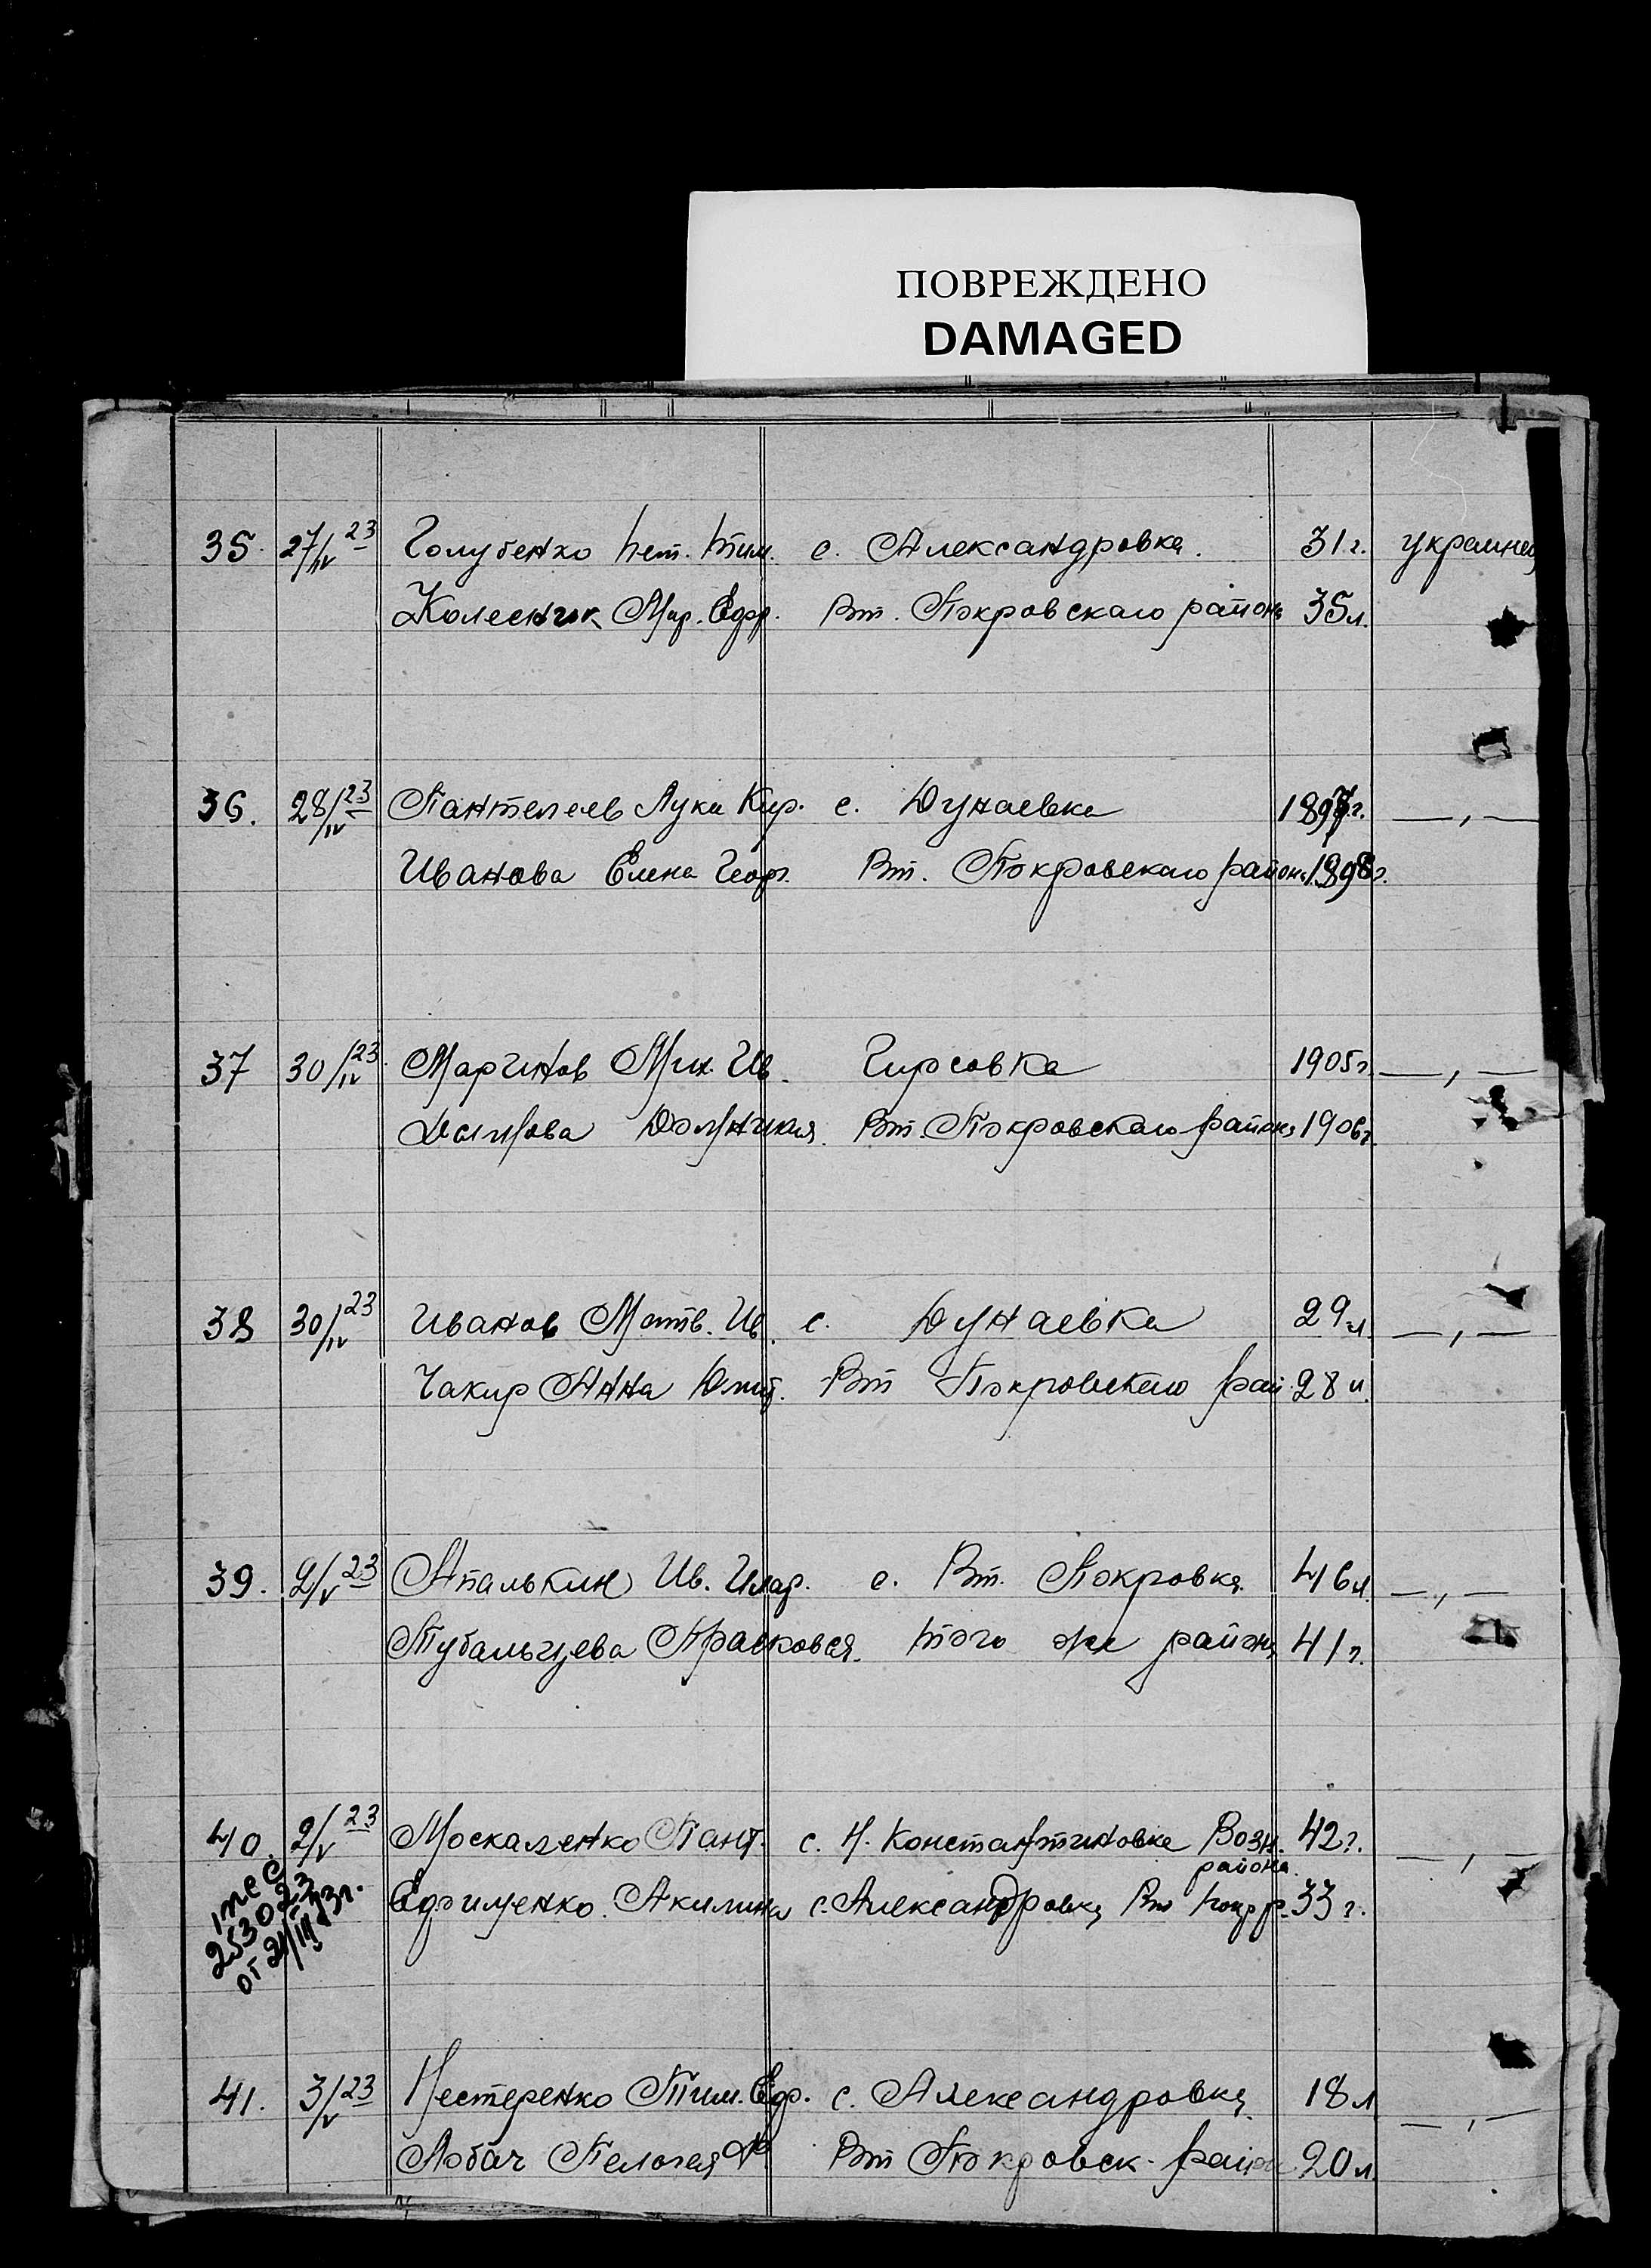 ПОВРЕЖДЕНО
DAMAGED
35. 27/IV 23 Голубенко Пет. Тим. с. Александровка. 31 г. украинец
Колесник Мар. Ефр. Вт. Покровского района 35 л.
36. 28/IV 23 Пантелеев Лука Кир. с. Дунаевка 1897 г. — „ —
Иванова Елена Геор. Вт. Покровского района 1898 г.
37 30/IV 23 Маринов Мих. Ив. Гирсовка 1905 г. — „ —
Домникия. Вт. Покровского района 1906 г.
38 30/IV 23 Иванов Матв. Ив. с. Дунаевка 29 л. — „ —
Чакир Анна Дмит. Вт Покровского рай. 28 л.
39. 2/V 23 Апалькин Ив. Илар. с. Вт. Покровка 46 л. — „ —
Тубальцева Прасковья. того же района 41 г.
40. 2/V 23 Москаленко Пант. с. Н. Константиновка Возн. 42 г. — „ —
района.
Ефименко Акилина с. Александровка Вт Покр р. 33 г.
253023
от
41. 3/V 23 Нестеренко Тим. Еф. с. Александровка 18 л — „ —
Лобач Пелагея Вт Покровск. района 20 л.